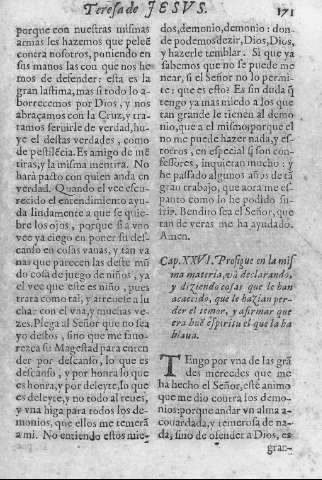 Teresa de JESVS. 171
porque con nuestras mismas
armas les hazemos que peleẽ
contra nosotros, poniendo en
sus manos las con que nos he
mos de defender: esta es la
gran lastima, mas si todo lo a-
borrecemos por Dios, y nos
abraçamos con la Cruz, y tra-
tamos seruirle de verdad, hu-
ye el destas verdades, como
de pestilẽcia. Es amigo de mẽ
tiras, y la misma mentira. No
hara pacto con quien anda en
verdad. Quando el vee escu-
recido el entendimiento ayu-
da lindamente a que se quie-
bre los ojos, porque si a vno
vee ya ciego en poner su des-
canso en cosas vanas, y tan va
nas que parecen las deste mũ
do cosa de juego de niños, ya
el vee que este es niño, pues
trata como tal, y atreuese a lu
char con el vna, y muchas ve-
zes. Plega al Señor que no sea
yo destos, sino que me fauo-
rezca su Magestad para enten
der por descanso, lo que es
descanso, y por honra lo que
es honra, y por deleyte, lo que
es deleyte, y no todo al reues,
y vna higa para todos los de-
monios, que ellos me temerã
a mi. No entiendo estos mie-
dos, demonio, demonio: don-
de podemos dezir, Dios, Dios,
y hazerle temblar. Si que ya
sabemos que no se puede me
near, si el Señor no lo permi-
te: que es esto? Es sin duda q̃
tengo ya mas miedo a los que
tan grande le tienen al demo
nio, que a el mismo; porque el
no me puede hazer nada, y es-
totros, en especial si son con-
fessores, inquietan mucho: y
he passado algunos años de tã
gran trabajo, que aora me es-
panto como lo he podido su-
frir. Bendito sea el Señor, que
tan de veras me ha ayudado.
Amen.
Cap. XXVI. Prosigue en la mis
ma materia, vâ declarando,
y diziendo cosas que le han
acaecido, que le hazian per-
der el temor, y afirmar que
era buẽ espiritu el que la ha
blaua.
TEngo por vna de las grã
des mercedes que me
ha hecho el Señor, este animo
que me dio contra los demo-
nios: porque andar vn alma a-
couardada, y temerosa de na-
da, sino de ofender a Dios, es
gran-